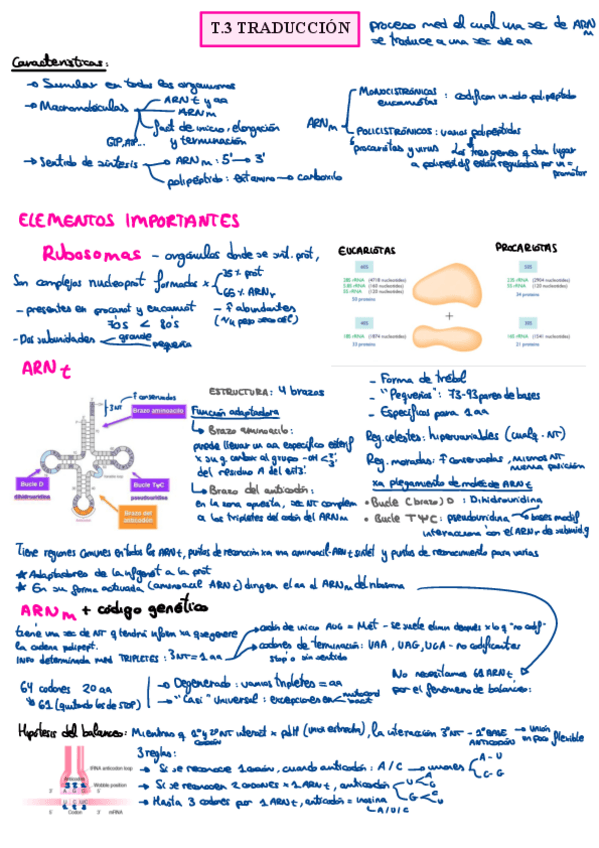 T.3 TRADUCCIÓN
proceso med el cual una sec de ARNm
se traduce a una sec de aa
Características:
→ Similar en todos los organismos
→ Macromoléculas
ARNt y aa
ARNm
fact de inicio, elongación
y terminación
GTP, ATP...
→ Sentido de síntesis
ARNm: 5' → 3'
polipéptido: extamino → carboxilo
ARNm
MONOCISTRÓNICOS: codifican un solo polipéptido
eucariotas
POLICISTRÓNICOS: varios polipéptidos
procariotas y virus
Los tres genes q dan lugar
a polipept dif están regulados por un =
promotor
ELEMENTOS IMPORTANTES
Ribosomas - orgánulos donde se sint. prot,
Son complejos nucleoprot formados x
35% prot
65% ARNr
- presentes en procariot y eucariot
70s < 80s
- ↑ abundantes
(~1/4 peso seco cél)
- Dos subunidades
grande
pequeña
EUCARIOTAS
PROCARIOTAS
60S
28S rRNA (4718 nucleotides)
5.8S rRNA (160 nucleotides)
5S rRNA (120 nucleotides)
50 proteins
50S
23S rRNA (2904 nucleotides)
5S rRNA (120 nucleotides)
34 proteins
+
40S
18S rRNA (1874 nucleotides)
33 proteins
30S
16S rRNA (1541 nucleotides)
21 proteins
ARNt
↑ conservados
3 NT
Brazo aminoacilo
Bucle D
dihidrouridina
Bucle TψC
pseudouridina
Brazo del
anticodón
ESTRUCTURA: 4 brazos
Función adaptadora
↳ Brazo aminoacilo:
puede llevar un aa específico esterif
x su g. carbox al grupo -OH
del residuo A del ext 3'
↳ Brazo del anticodón:
en la zona opuesta, sec NT complem
a los tripletes del codón del ARNm
- Forma de trébol
- "Pequeños": 73-93 pares de bases
- Específicos para 1 aa
Reg. celestes: hipervariables (cualq. NT)
Reg. moradas: ↑ conservadas, mismos NT
misma posición
xa plegamiento de moléc de ARNt
• Bucle (brazo) D: Dihidrouridina
• Bucle TΨC: pseudouridina → bases modif
interacciona con el ARNr de subunid. g
Tiene regiones comunes en todos los ARNt, puntos de reconoción xa una aminoacil-ARNt sintet y puntos de reconocimiento para varias
★ Adaptadores de la inf genét a la prot
★ En su forma activada (aminoacil ARNt) dirigen el aa al ARNm del ribosoma
ARNm + código genético
tiene una sec de NT q tendrá inform xa que genere
la cadena polipept.
INFO determinada med TRIPLETES: 3NT = 1 aa
codón de inicio AUG = Met - se suele elimin después x lo q "no codif"
codones de terminación: UAA, UAG, UGA - no codificantes
stop o sin sentido
64 codones 20 aa
↳ 61 (quitando los de STOP)
→ Degenerado: varios tripletes = aa
→ "Casi" universal: excepciones en
mitocond
bact
No necesitamos 61 ARNt
por el fenómeno de balanceo:
Hipótesis del balanceo: Mientras q 1º y 2º NT interact x pdH (unión estrecha), la interacción 3º NT - 1º BASE → unión
codón
ANTICODÓN
en poco flexible
3 reglas:
→ Si se reconoce 1 codón, cuando anticodón: A / C → uniones
A - U
C - G
→ Si se reconocen 2 codones x 1 ARNt, anticodón
U
A
G
G
C
U
→ Hasta 3 codones por 1 ARNt, anticodón = inosina
↳ A / U / C
tRNA anticodon loop
Anticodon
Wobble position
3'
5'
5'
3'
Codon
mRNA